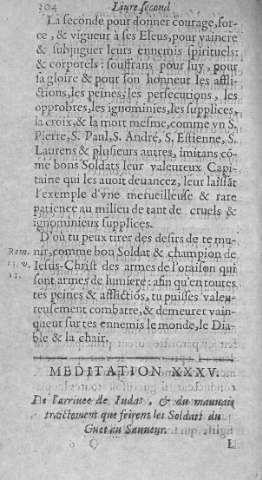 304 Liure second
La seconde pour donner courage, for-
ce, & vigueur à ses Esleus, pour vaincre
& subjuguer leurs ennemis spirituels;
& corporels: souffrans pour luy, pour
sa gloire & pour son honneur les affli-
ctions, les peines, les persecutions, les
opprobres, les ignominies, les supplices,
la croix, & la mort mesme, comme vn S.
Pierre, S. Paul, S. André, S. Estienne, S.
Laurens & plusieurs autres, imitans cō-
me bons Soldats leur valeureux Capi-
taine qui les auoit deuancez, leur laissāt
l'exemple d'vne merueilleuse & rare
patience au milieu de tant de cruels &
ignominieux supplices.
D'où tu peux tirer des desirs de te mu-
Rom. nir, comme bon Soldat & champion de
13. v. Iesus-Christ des armes de l'oraison qui
12. sont armes de lumiere: afin qu'en toutes
tes peines & afflictiōs, tu puisses valeu-
reusement combatre, & demeurer vain-
queur sur tes ennemis le monde, le Dia-
ble & la chair.
MEDITATION XXXV.
De l'arriuee de Iudas, & du mauuais
traictement que firent les Soldats du
Guet au Sauueur.
L